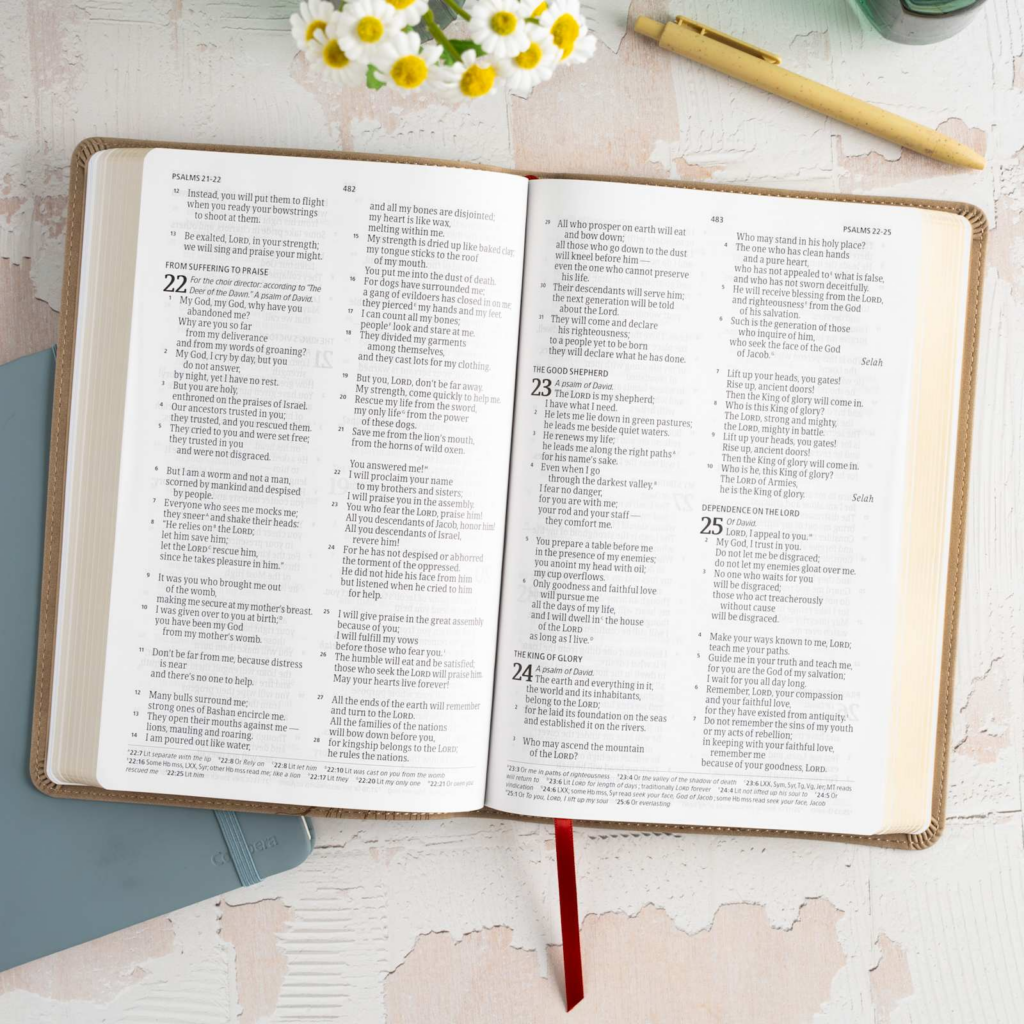 PSALMS 21-22
482
12 Instead, you will put them to flight
when you ready your bowstrings
to shoot at them.
13 Be exalted, LORD, in your strength;
we will sing and praise your might.
FROM SUFFERING TO PRAISE
22 For the choir director: according to "The
Deer of the Dawn." A psalm of David.
1 My God, my God, why have you
abandoned me?
Why are you so far
from my deliverance
and from my words of groaning?
2 My God, I cry by day, but you
do not answer,
by night, yet I have no rest.
3 But you are holy,
enthroned on the praises of Israel.
4 Our ancestors trusted in you;
they trusted, and you rescued them.
5 They cried to you and were set free;
they trusted in you
and were not disgraced.
6 But I am a worm and not a man,
scorned by mankind and despised
by people.
7 Everyone who sees me mocks me;
they sneer and shake their heads:
8 "He relies on the LORD;
let him save him;
let the LORD rescue him,
since he takes pleasure in him."
9 It was you who brought me out
of the womb,
making me secure at my mother's breast.
10 I was given over to you at birth;
you have been my God
from my mother's womb.
11 Don't be far from me, because distress
is near
and there's no one to help.
12 Many bulls surround me;
strong ones of Bashan encircle me.
13 They open their mouths against me —
lions, mauling and roaring.
14 I am poured out like water,
and all my bones are disjointed;
my heart is like wax,
melting within me.
15 My strength is dried up like baked clay;
my tongue sticks to the roof
of my mouth.
You put me into the dust of death.
16 For dogs have surrounded me;
a gang of evildoers has closed in on me;
they pierced my hands and my feet.
17 I can count all my bones;
people look and stare at me.
18 They divided my garments
among themselves,
and they cast lots for my clothing.
19 But you, LORD, don't be far away.
My strength, come quickly to help me.
20 Rescue my life from the sword,
my only life from the power
of these dogs.
21 Save me from the lion's mouth,
from the horns of wild oxen.
You answered me!
22 I will proclaim your name
to my brothers and sisters;
I will praise you in the assembly.
23 You who fear the LORD, praise him!
All you descendants of Jacob, honor him!
All you descendants of Israel,
revere him!
24 For he has not despised or abhorred
the torment of the oppressed.
He did not hide his face from him
but listened when he cried to him
for help.
25 I will give praise in the great assembly
because of you;
I will fulfill my vows
before those who fear you.
26 The humble will eat and be satisfied;
those who seek the LORD will praise him.
May your hearts live forever!
27 All the ends of the earth will remember
and turn to the LORD.
All the families of the nations
will bow down before you,
28 for kingship belongs to the LORD;
he rules the nations.
22:7 Lit separate with the lip 22:8 Or Rely on 22:8 Lit let him 22:10 Lit was cast on you from the womb
22:16 Some Hb mss, LXX, Syr; other Hb mss read me; like a lion 22:17 Lit they 22:20 Lit my only one 22:21 Or
rescued me 22:25 Lit him
483
PSALMS 22-25
29 All who prosper on earth will eat
and bow down;
all those who go down to the dust
will kneel before him —
even the one who cannot preserve
his life.
30 Their descendants will serve him;
the next generation will be told
about the Lord.
31 They will come and declare
his righteousness;
to a people yet to be born
they will declare what he has done.
THE GOOD SHEPHERD
23 A psalm of David.
The LORD is my shepherd;
I have what I need.
2 He lets me lie down in green pastures;
he leads me beside quiet waters.
3 He renews my life;
he leads me along the right paths
for his name's sake.
4 Even when I go
through the darkest valley,
I fear no danger,
for you are with me;
your rod and your staff —
they comfort me.
5 You prepare a table before me
in the presence of my enemies;
you anoint my head with oil;
my cup overflows.
6 Only goodness and faithful love
will pursue me
all the days of my life,
and I will dwell in the house
of the LORD
as long as I live.
THE KING OF GLORY
24 A psalm of David.
The earth and everything in it,
the world and its inhabitants,
belong to the LORD;
2 for he laid its foundation on the seas
and established it on the rivers.
3 Who may ascend the mountain
of the LORD?
Who may stand in his holy place?
4 The one who has clean hands
and a pure heart,
who has not appealed to what is false,
and who has not sworn deceitfully.
5 He will receive blessing from the LORD,
and righteousness from the God
of his salvation.
6 Such is the generation of those
who inquire of him,
who seek the face of the God
of Jacob. Selah
7 Lift up your heads, you gates!
Rise up, ancient doors!
Then the King of glory will come in.
8 Who is this King of glory?
The LORD, strong and mighty,
the LORD, mighty in battle.
9 Lift up your heads, you gates!
Rise up, ancient doors!
Then the King of glory will come in.
10 Who is he, this King of glory?
The LORD of Armies,
he is the King of glory. Selah
DEPENDENCE ON THE LORD
25 Of David.
LORD, I appeal to you.
2 My God, I trust in you.
Do not let me be disgraced;
do not let my enemies gloat over me.
3 No one who waits for you
will be disgraced;
those who act treacherously
without cause
will be disgraced.
4 Make your ways known to me, LORD;
teach me your paths.
5 Guide me in your truth and teach me,
for you are the God of my salvation;
I wait for you all day long.
6 Remember, LORD, your compassion
and your faithful love,
for they have existed from antiquity.
7 Do not remember the sins of my youth
or my acts of rebellion;
in keeping with your faithful love,
remember me
because of your goodness, LORD.
23:3 Or me in paths of righteousness 23:4 Or the valley of the shadow of death 23:6 LXX, Sym, Syr, Tg, Vg, Jer; MT reads
will return to 23:6 Lit LORD for length of days; traditionally LORD forever 24:4 Lit not lifted up his soul to 24:5 Or
vindication 24:6 LXX; some Hb mss, Syr read seek your face, God of Jacob; some Hb mss read seek your face, Jacob
25:1 Or To you, LORD, I lift up my soul 25:6 Or everlasting